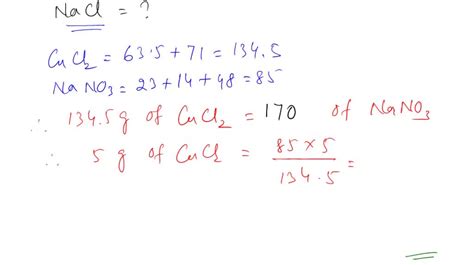 NaCl = ?
CuCl₂ = 63.5 + 71 = 134.5
NaNO₃ = 23 + 14 + 48 = 85
∴ 134.5 g of CuCl₂ = 170 of NaNO₃
∴ 5 g of CuCl = 85 × 5 / 134.5 =